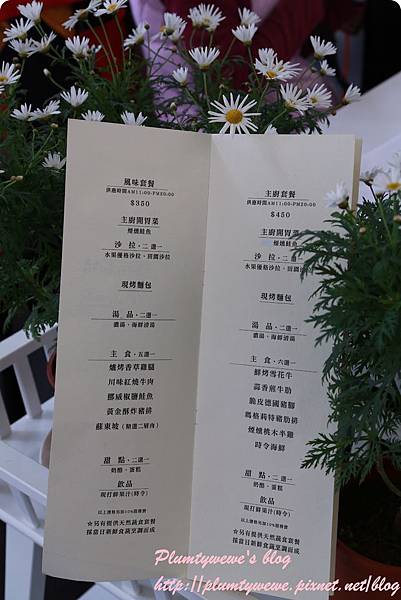 風味套餐
供應時間AM11:00-PM20:00
$350
主廚開胃菜
煙燻鮭魚
沙拉·二選一
水果優格沙拉、田園沙拉
現烤麵包
湯品·二選一
濃湯、海鮮清湯
主食·五選一
爐烤香草雞腿
川味紅燒牛肉
挪威椒鹽鮭魚
黃金酥炸豬排
蘇東坡(精選二層肉)
甜點·二選一
奶酪、蛋糕
飲品
現打鮮果汁(時令)
以上應格另加10%服務費
☆另有提供天然蔬食套餐
採當日新鮮食蔬烹調而成
主廚套餐
供應時間AM11:00-PM20:00
$450
主廚開胃菜
煙燻鮭魚
沙拉·二選一
水果優格沙拉、田園沙拉
現烤麵包
湯品·二選一
濃湯、海鮮清湯
主食·六選一
鮮烤雪花牛
蒜香煎牛肋
脆皮德國豬腳
瑪格莉特豬肋排
煙燻桃木半雞
時令海鮮
甜點·二選一
奶酪、蛋糕
飲品
現打鮮果汁(時令)
以上應格另加10%服務費
☆另有提供天然蔬食套餐
採當日新鮮食蔬烹調而成
Plumtywewe's blog
http://plumtywewe.pixnet.net/blog